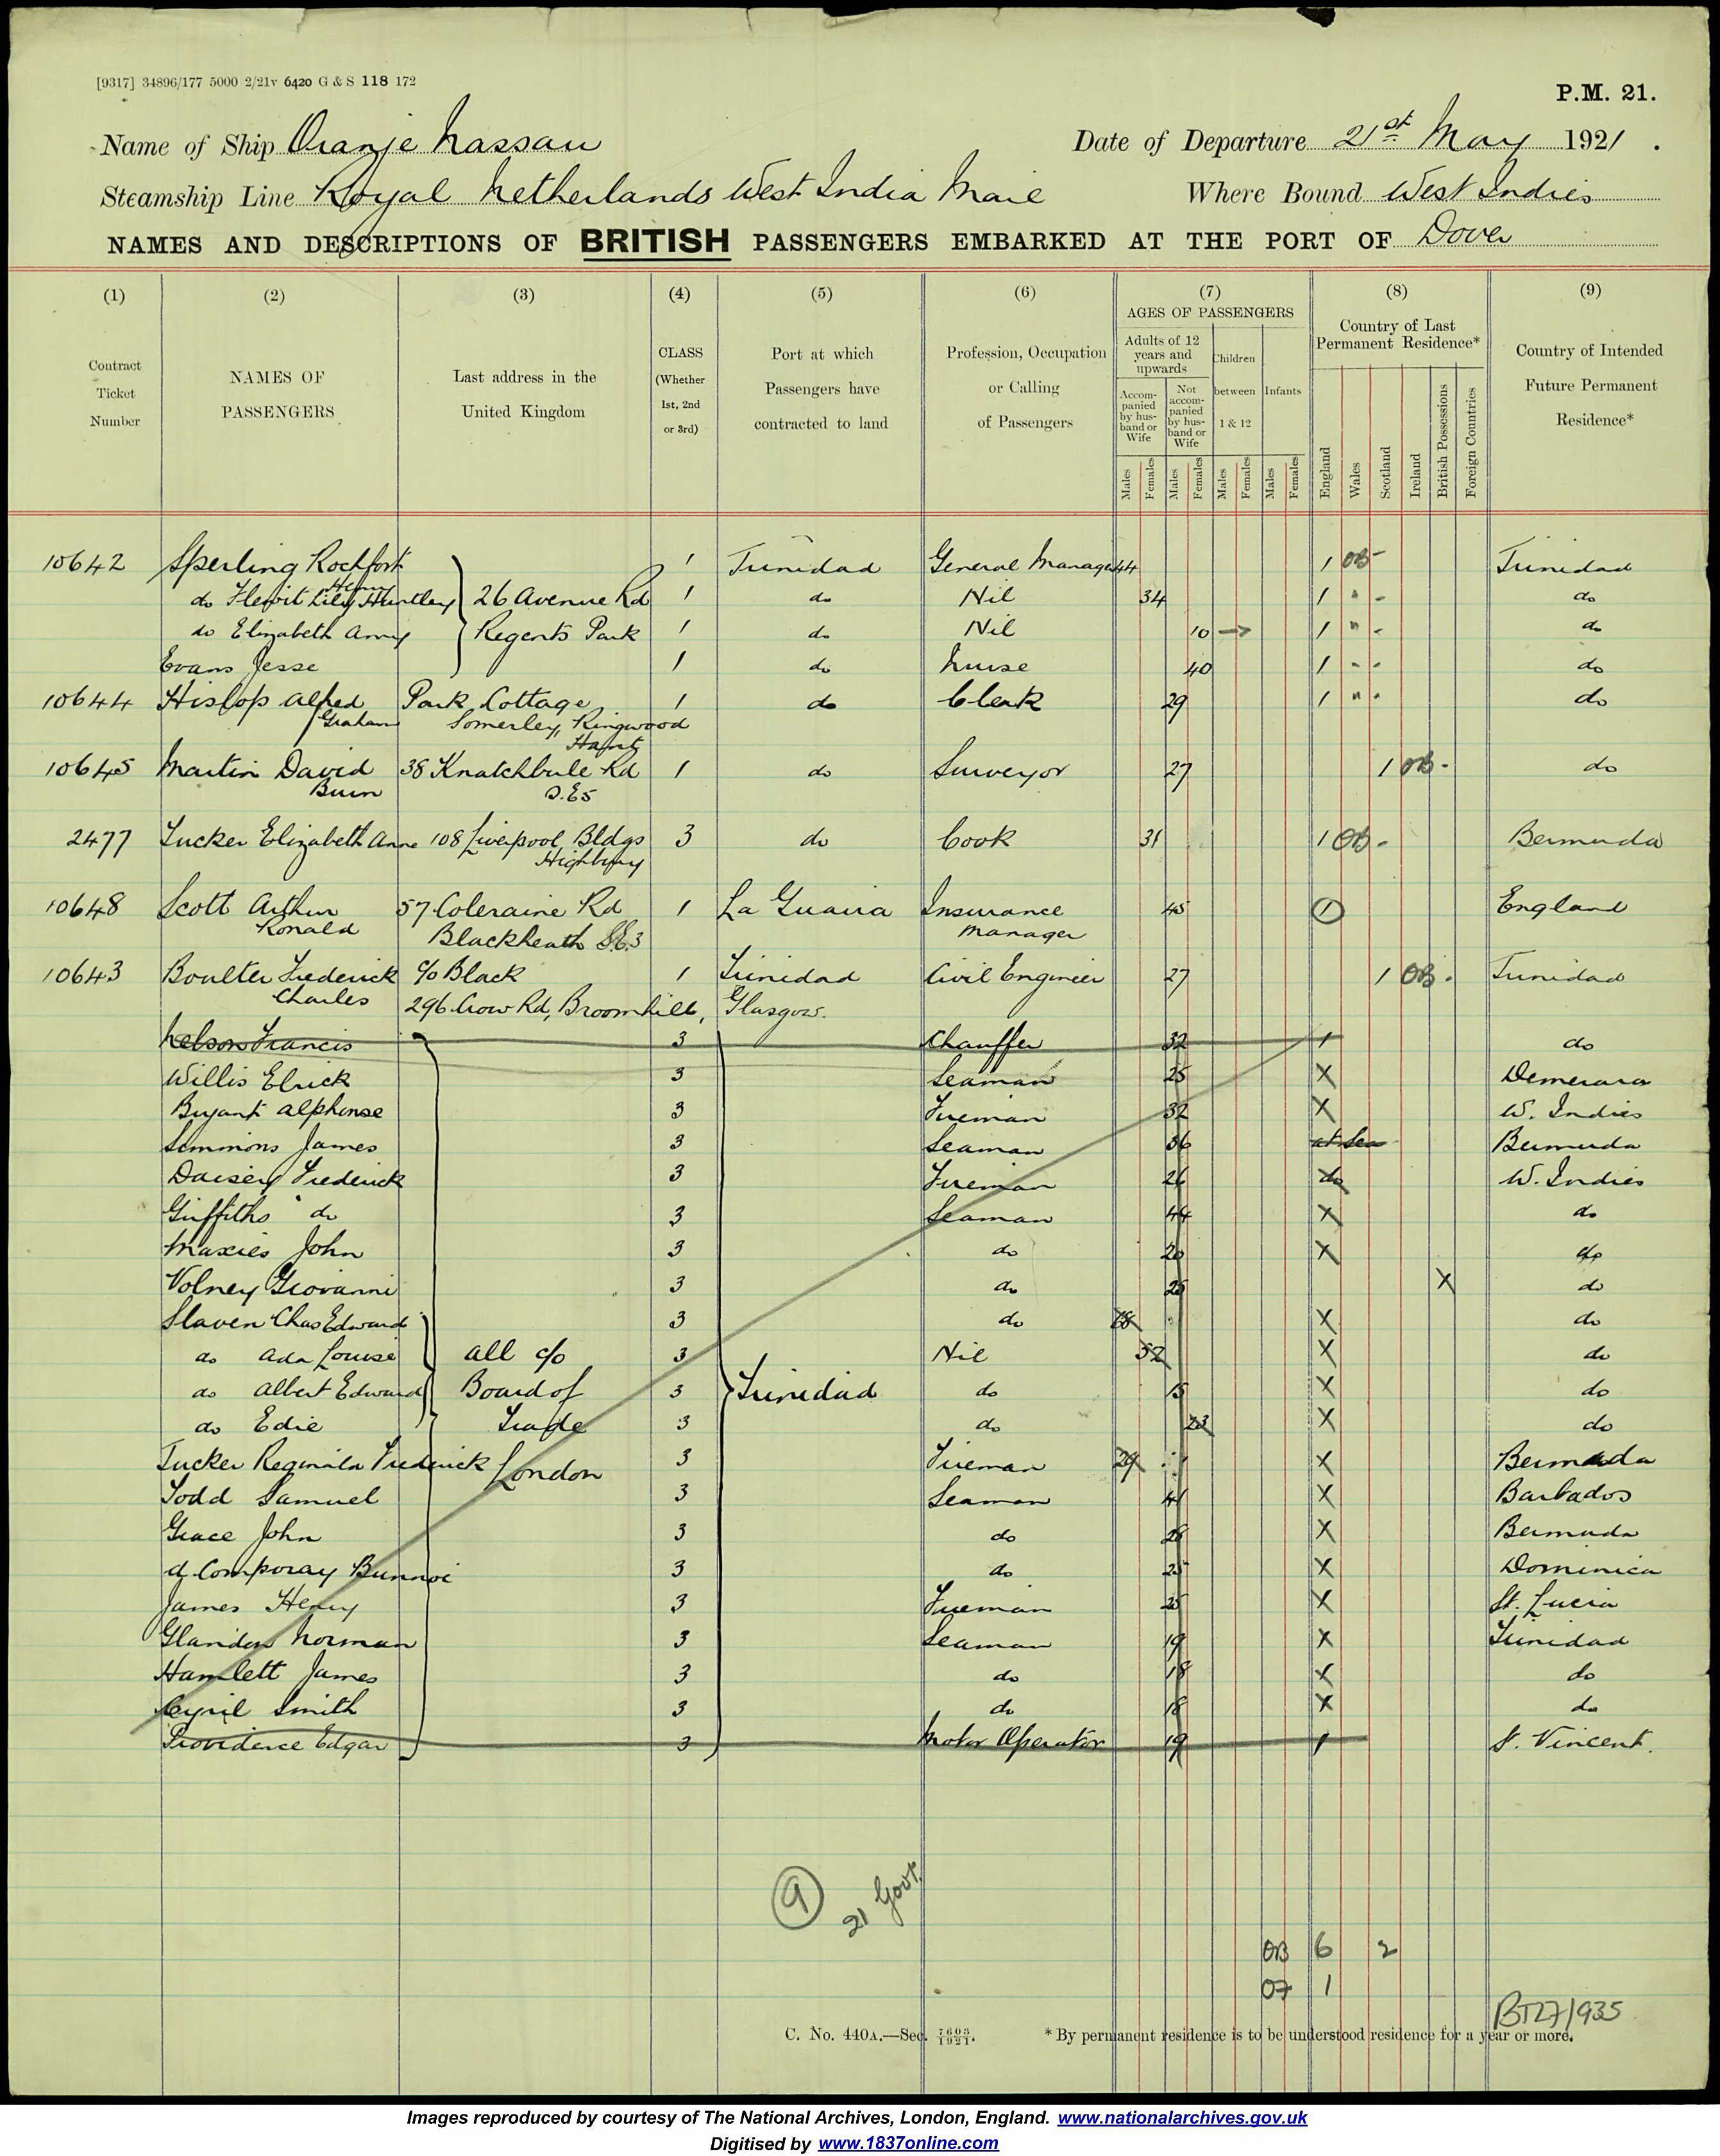 [9317] 34896/177 5000 2/21v 6420 G & S 118 172
P.M. 21.
Name of Ship Oranje Nassau Date of Departure 21st May 1921.
Steamship Line Royal Netherlands West India Mail Where Bound West Indies
NAMES AND DESCRIPTIONS OF BRITISH PASSENGERS EMBARKED AT THE PORT OF Dover
(1) (2) (3) (4) (5) (6) (7) (8) (9)
Contract Ticket Number
NAMES OF PASSENGERS
Last address in the United Kingdom
CLASS (Whether 1st, 2nd or 3rd)
Port at which Passengers have contracted to land
Profession, Occupation or Calling of Passengers
AGES OF PASSENGERS
Adults of 12 years and upwards
Accompanied by husband or Wife
Not accompanied by husband or Wife
Children between 1 & 12
Infants
Males Females Males Females Males Females Males Females
Country of Last Permanent Residence*
England Wales Scotland Ireland British Possessions Foreign Countries
Country of Intended Future Permanent Residence*
10642 Sperling Rochfort 1 Trinidad General Manager 44 1 OB - Trinidad
Henry
do Lily Huntley 26 Avenue Rd 1 do Nil 34 1 " - do
do Elizabeth Amy Regents Park 1 do Nil 10 → 1 " - do
Evans Jesse 1 do Nurse 40 1 - - do
10644 Hislop Alfred Park Cottage 1 do Clerk 29 1 " " do
Graham Somerley, Ringwood
Hants
10645 Martin David 38 Knatchbull Rd 1 do Surveyor 27 1 OB - do
Burn S.E5
2477 Tucker Elizabeth Anne 108 Liverpool Bldgs 3 do Cook 31 1 OB - Bermuda
Highbury
10648 Scott Arthur 57 Coleraine Rd 1 La Guaira Insurance 45 1 England
Ronald Blackheath S.E.3 Manager
10643 Boulter Frederick c/o Black 1 Trinidad Civil Engineer 27 1 OB - Trinidad
Charles 296 Crow Rd, Broomhill, Glasgow.
Nelson Francis 3 Chauffer 32 1 do
Willis Elrick 3 Seaman 25 X Demerara
Bryant Alphonse 3 Fireman 32 X W. Indies
Simmons James 3 Seaman 36 at Sea Bermuda
Daisey Frederick 3 Fireman 26 do W. Indies
Griffiths do 3 Seaman 44 X do
Maxies John 3 do 20 X do
Volney Giovanni 3 do 25 X do
Slaven Chas Edward 3 do 28 X do
do Ada Louise all c/o 3 Nil 32 X do
do Albert Edward Board of 3 Trinidad do 15 X do
do Edie Trade 3 do 23 X do
Tucker Reginald Frederick London 3 Fireman 29 X Bermuda
Todd Samuel 3 Seaman 41 X Barbados
Grace John 3 do 28 X Bermuda
3 do 25 X Dominica
James Henry 3 Fireman 25 X St. Lucia
Glandon Norman 3 Seaman 19 X Trinidad
Hamlett James 3 do 18 X do
Cyril Smith 3 do 18 X do
Providence Edgar 3 Motor Operator 19 1 St. Vincent.
9
21 Govt.
OB 6 2
07 1
BT27/935
C. No. 440A.—Sec. 7603/1921.
* By permanent residence is to be understood residence for a year or more.
Images reproduced by courtesy of The National Archives, London, England. www.nationalarchives.gov.uk
Digitised by www.1837online.com